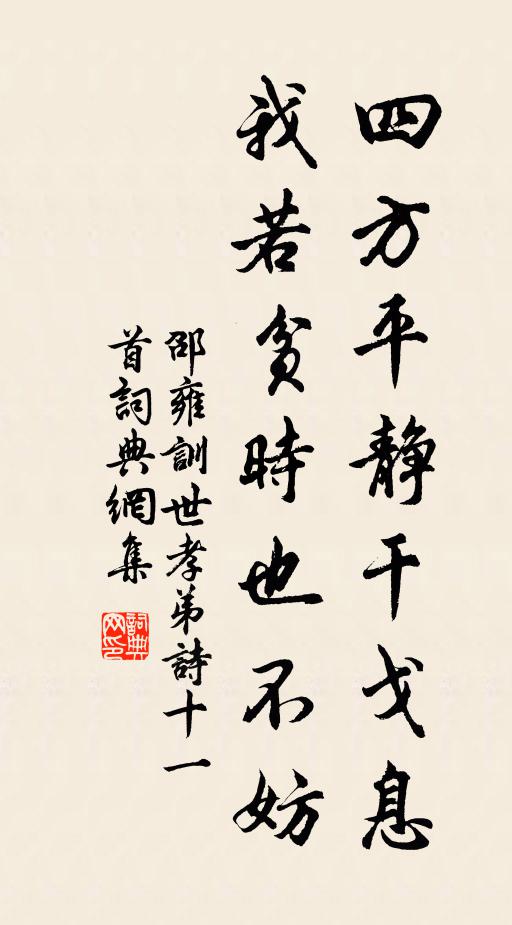 四方平静干戈息
我若貧時也不妨
邵雍訓世孝弟詩十一
首詞典網集
詞典
网印